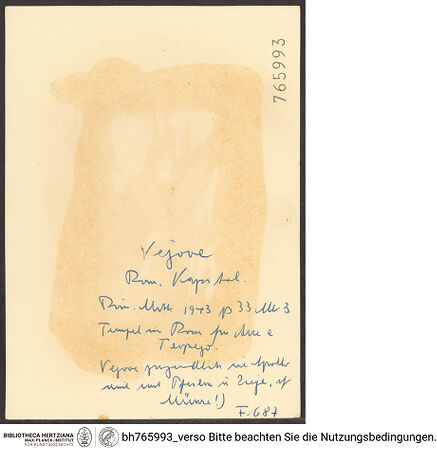 765993
Vejove
Rom. Kapitol.
Röm. Mitt 1943 p 33 Abb 3
Tempel in Rom
Vejove jugendlich wie Apollo
und mit Pfeilen u Ziege, cf
Münze!)
F. 687
BIBLIOTHECA HERTZIANA
MAX-PLANCK-INSTITUT
FÜR KUNSTGESCHICHTE
bh765993_verso Bitte beachten Sie die Nutzungsbedingungen.